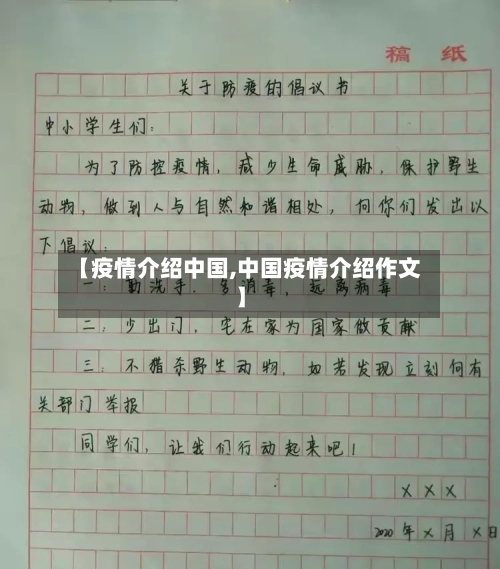 稿 纸
关于防疫的倡议书
中小学生们：
为了防控疫情，减少生命威胁，保护野生
动物，做到人与自然和谐相处，向你们发出以
下倡议：
【疫情介绍中国,中国疫情介绍作文
】
一：勤洗手，多消毒，远离病毒
二：少出门，宅在家为国家做贡献
三：不猎杀野生动物，如若发现立刻向有
关部门举报
同学们，让我们行动起来吧！
×××
2020年×月×日